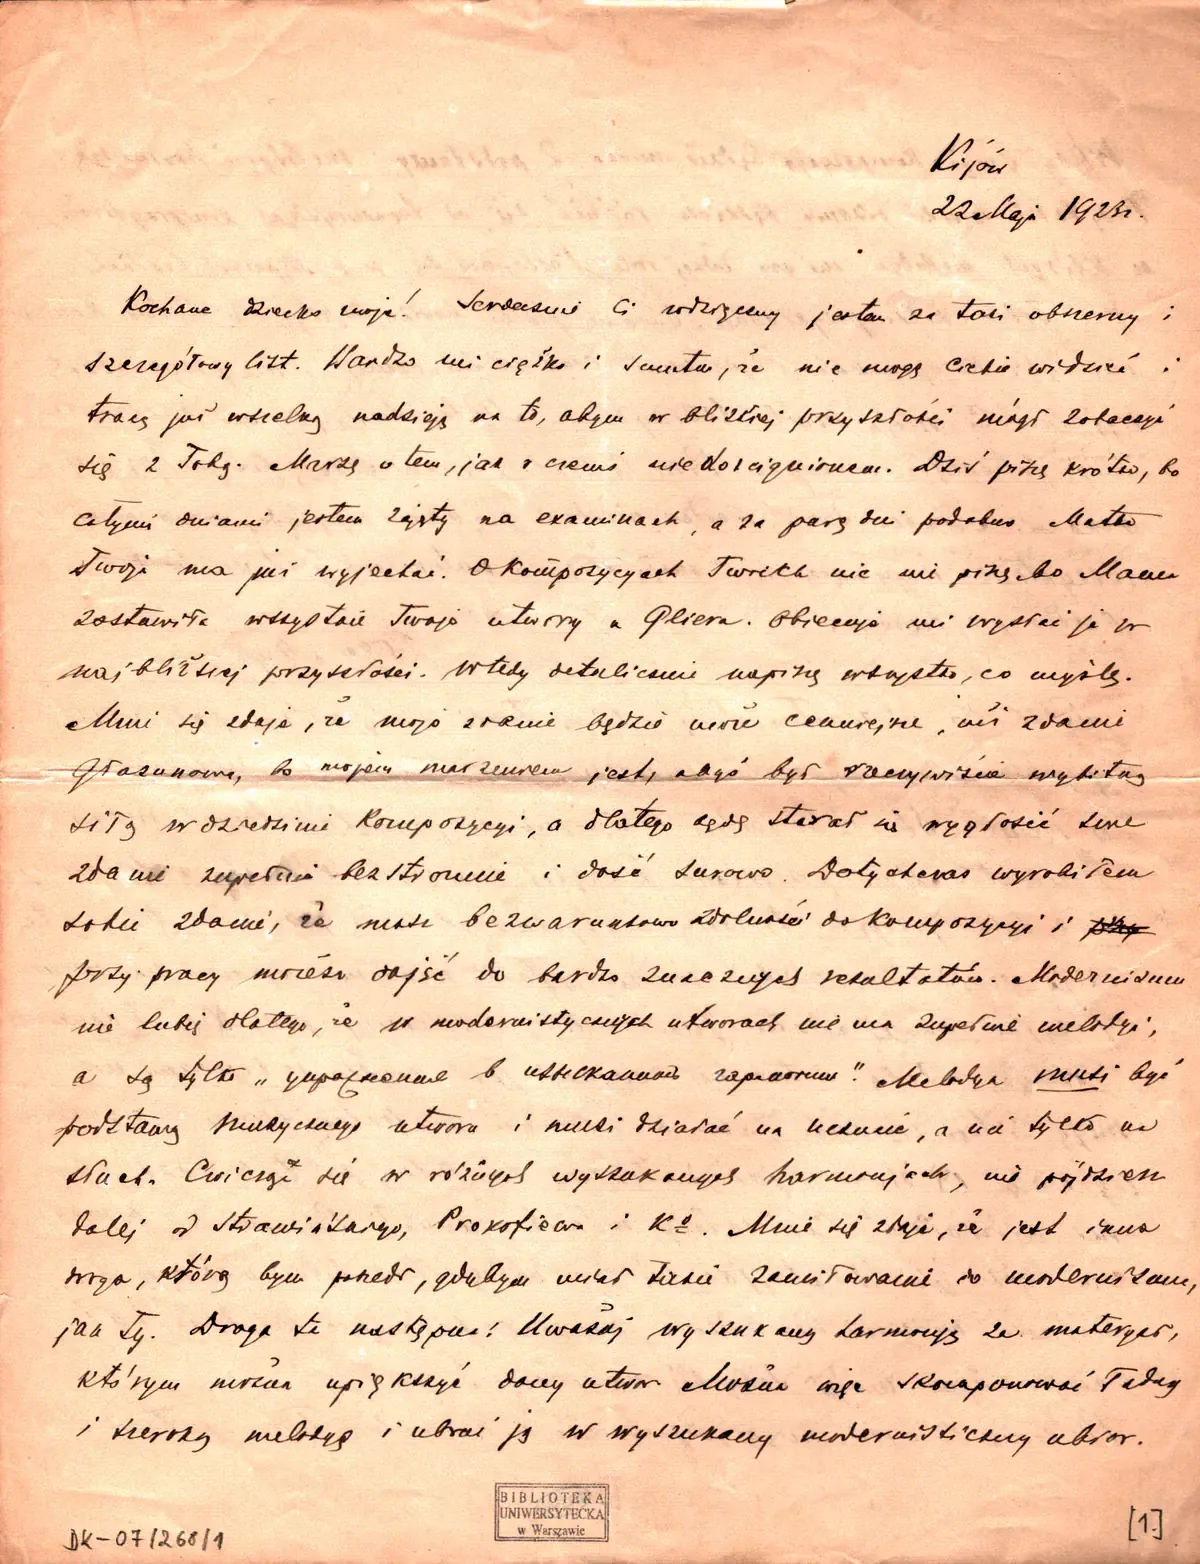 Kijów
22 Maja 1923r.
Kochane dziecko moje! Serdecznie Ci wdzięczny jestem za taki obszerny i
szczegółowy list. Bardzo mi ciężko i smutno, że nie mogę Ciebie widzieć i
tracę już wszelką nadzieję na to, abym w bliższej przyszłości mógł zobaczyć
się z Tobą. Marzę o tem, jak o czemś niedoścignionem. Dziś piszę krótko, bo
całymi dniami jestem zajęty na examinach, a za parę dni podobno Matka
Twoja ma już wyjechać. O kompozycyach Twoich nic nie piszę, bo Mama
zostawiła wszystkie Twoje utwory u Gliera. Obiecuje mi wysłać je w
najbliższej przyszłości. Wtedy detalicznie napiszę wszystko, co myślę.
Mnie się zdaje, że moje zdanie będzie może cenniejsze, niż zdanie
Głazunowa, bo mojem marzeniem jest, abyś był rzeczywiście wybitną
siłą w dziedzinie kompozycyi, a dlatego będę starał się wygłosić swe
zdanie zupełnie bezstronnie i dość surowo. Dotychczas wyrobiłem
sobie zdanie, że masz bezwarunkowo zdolności do kompozycyi i
przy pracy możesz dojść do bardzo znacznych rezultatów. Modernizmu
nie lubię dlatego, że w modernistycznych utworach nie ma zupełnie melodyi,
a są tylko „упражнения в изысканных гармониях". Melodya musi być
podstawą muzycznego utworu i musi działać na uczucie, a nie tylko na
słuch. Ćwicząc się w różnych wyszukanych harmonjach, nie pójdziesz
dalej od Strawińskiego, Prokofiewa i Kº. Mnie się zdaje, że jest inna
droga, którą bym poszedł, gdybym miał takie zamiłowanie do modernizmu,
jak Ty. Droga ta następna: Uważaj wyszukaną harmonję za materyał,
którym można upiększyć dany utwór. Można więc skomponować ładną
i szeroką melodyę i ubrać ją w wyszukany modernistyczny ubiór.
BIBLIOTEKA
UNIWERSYTECKA
w Warszawie
DK-07/268/1
[1.]